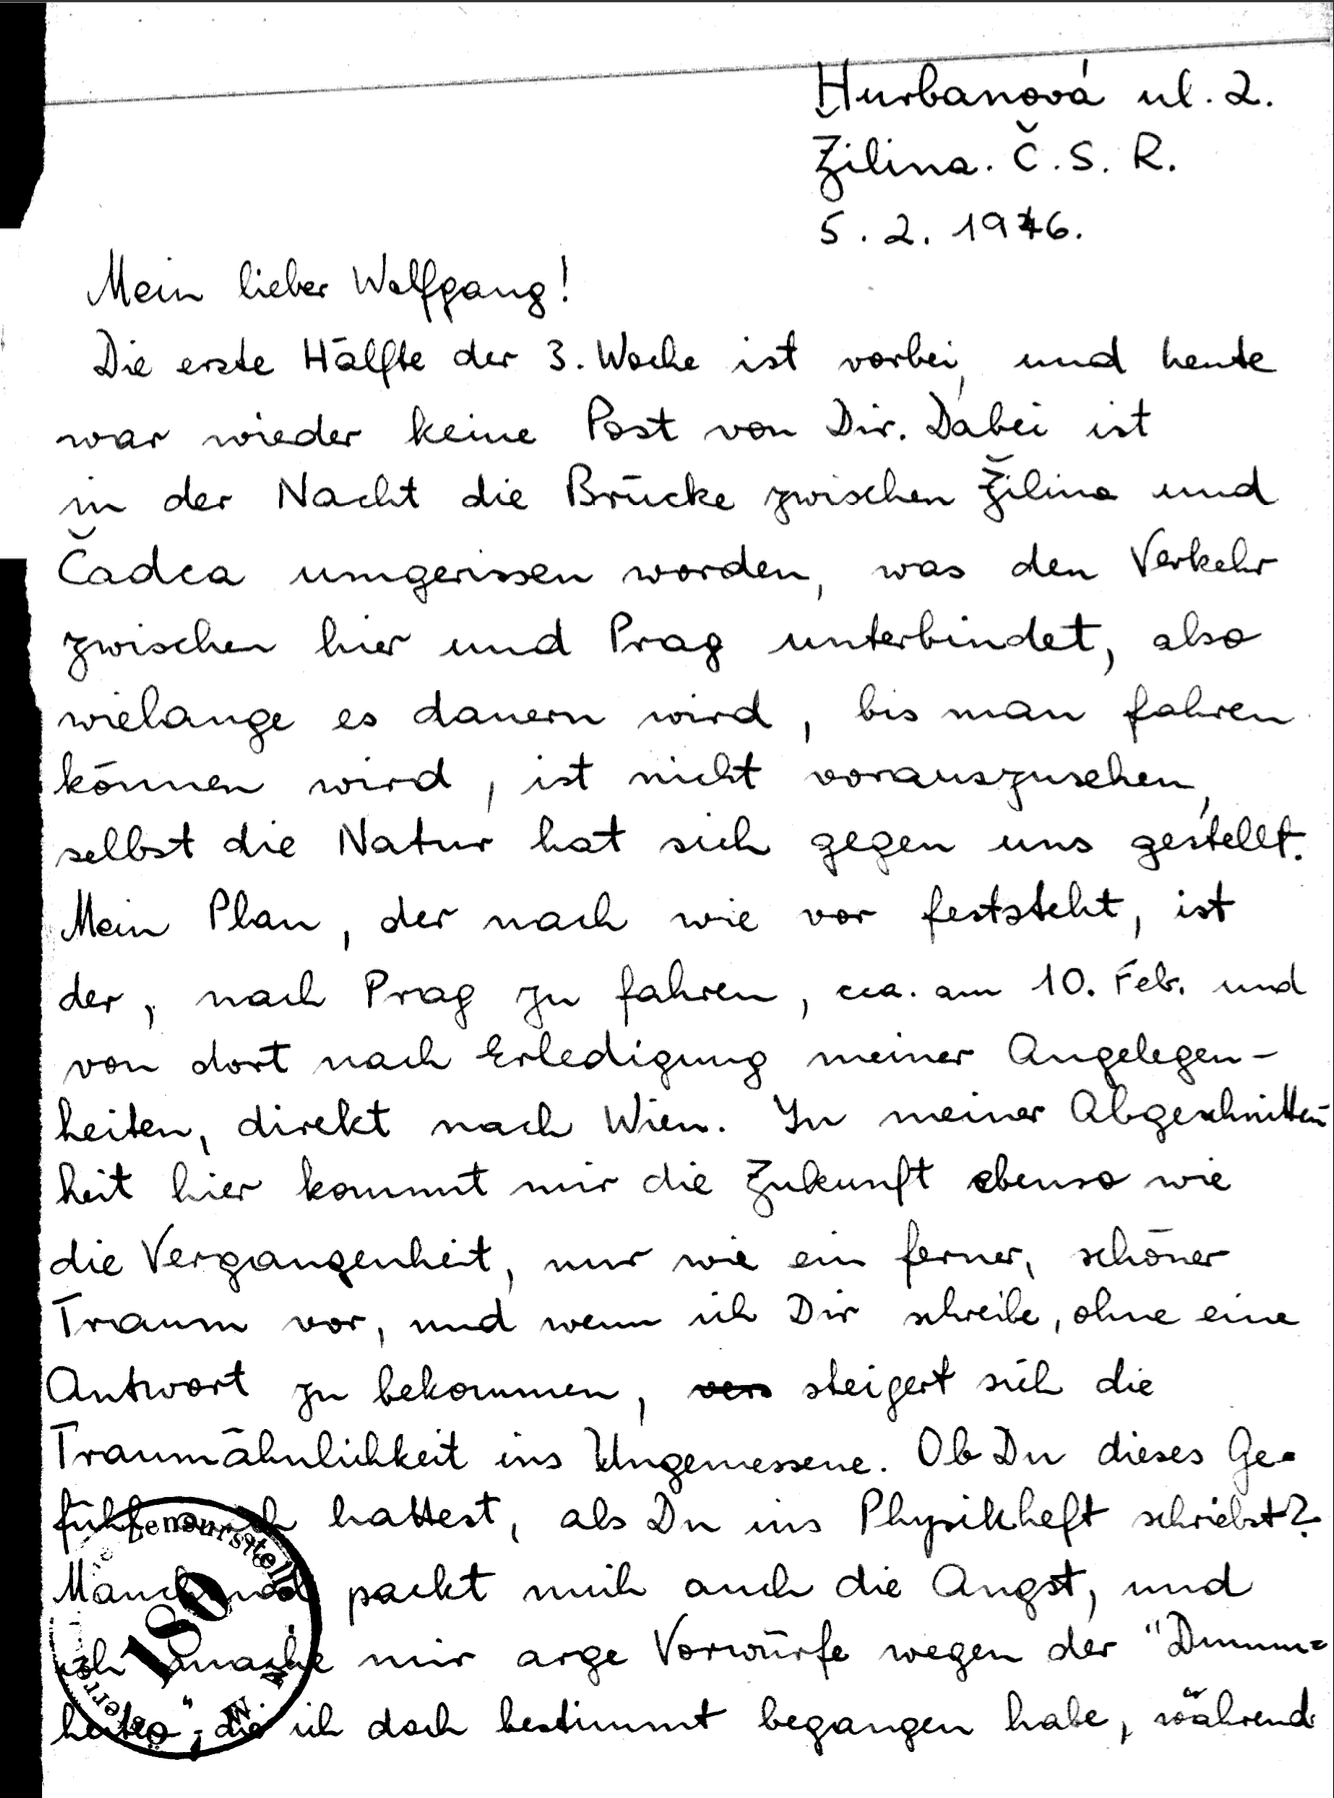 Hurbanová ul. 2.
Žilina. Č. S. R.
5. 2. 1946.
Mein lieber Wolfgang!
Die erste Hälfte der 3. Woche ist vorbei, und heute
war wieder keine Post von Dir. Dabei ist
in der Nacht die Brücke zwischen Žilina und
Čadca umgerissen worden, was den Verkehr
zwischen hier und Prag unterbindet, also
wielange es dauern wird, bis man fahren
können wird, ist nicht vorauszusehen,
selbst die Natur hat sich gegen uns gestellt.
Mein Plan, der nach wie vor feststeht, ist
der, nach Prag zu fahren, cca. am 10. Feb. und
von dort nach Erledigung meiner Angelegen-
heiten, direkt nach Wien. In meiner Abgeschnitten-
heit hier kommt mir die Zukunft ebenso wie
die Vergangenheit, nur wie ein ferner, schöner
Traum vor, und wenn ich Dir schreibe, ohne eine
Antwort zu bekommen, steigert sich die
Traumähnlichkeit ins Ungemessene. Ob Du dieses Ge-
fühl auch hattest, als Du ins Physikheft schriebst?
Manchmal packt mich auch die Angst, und
ich mache mir arge Vorwürfe wegen der "Dumm=
heit", die ich doch bestimmt begangen habe, während
Zensurstelle
180
M.